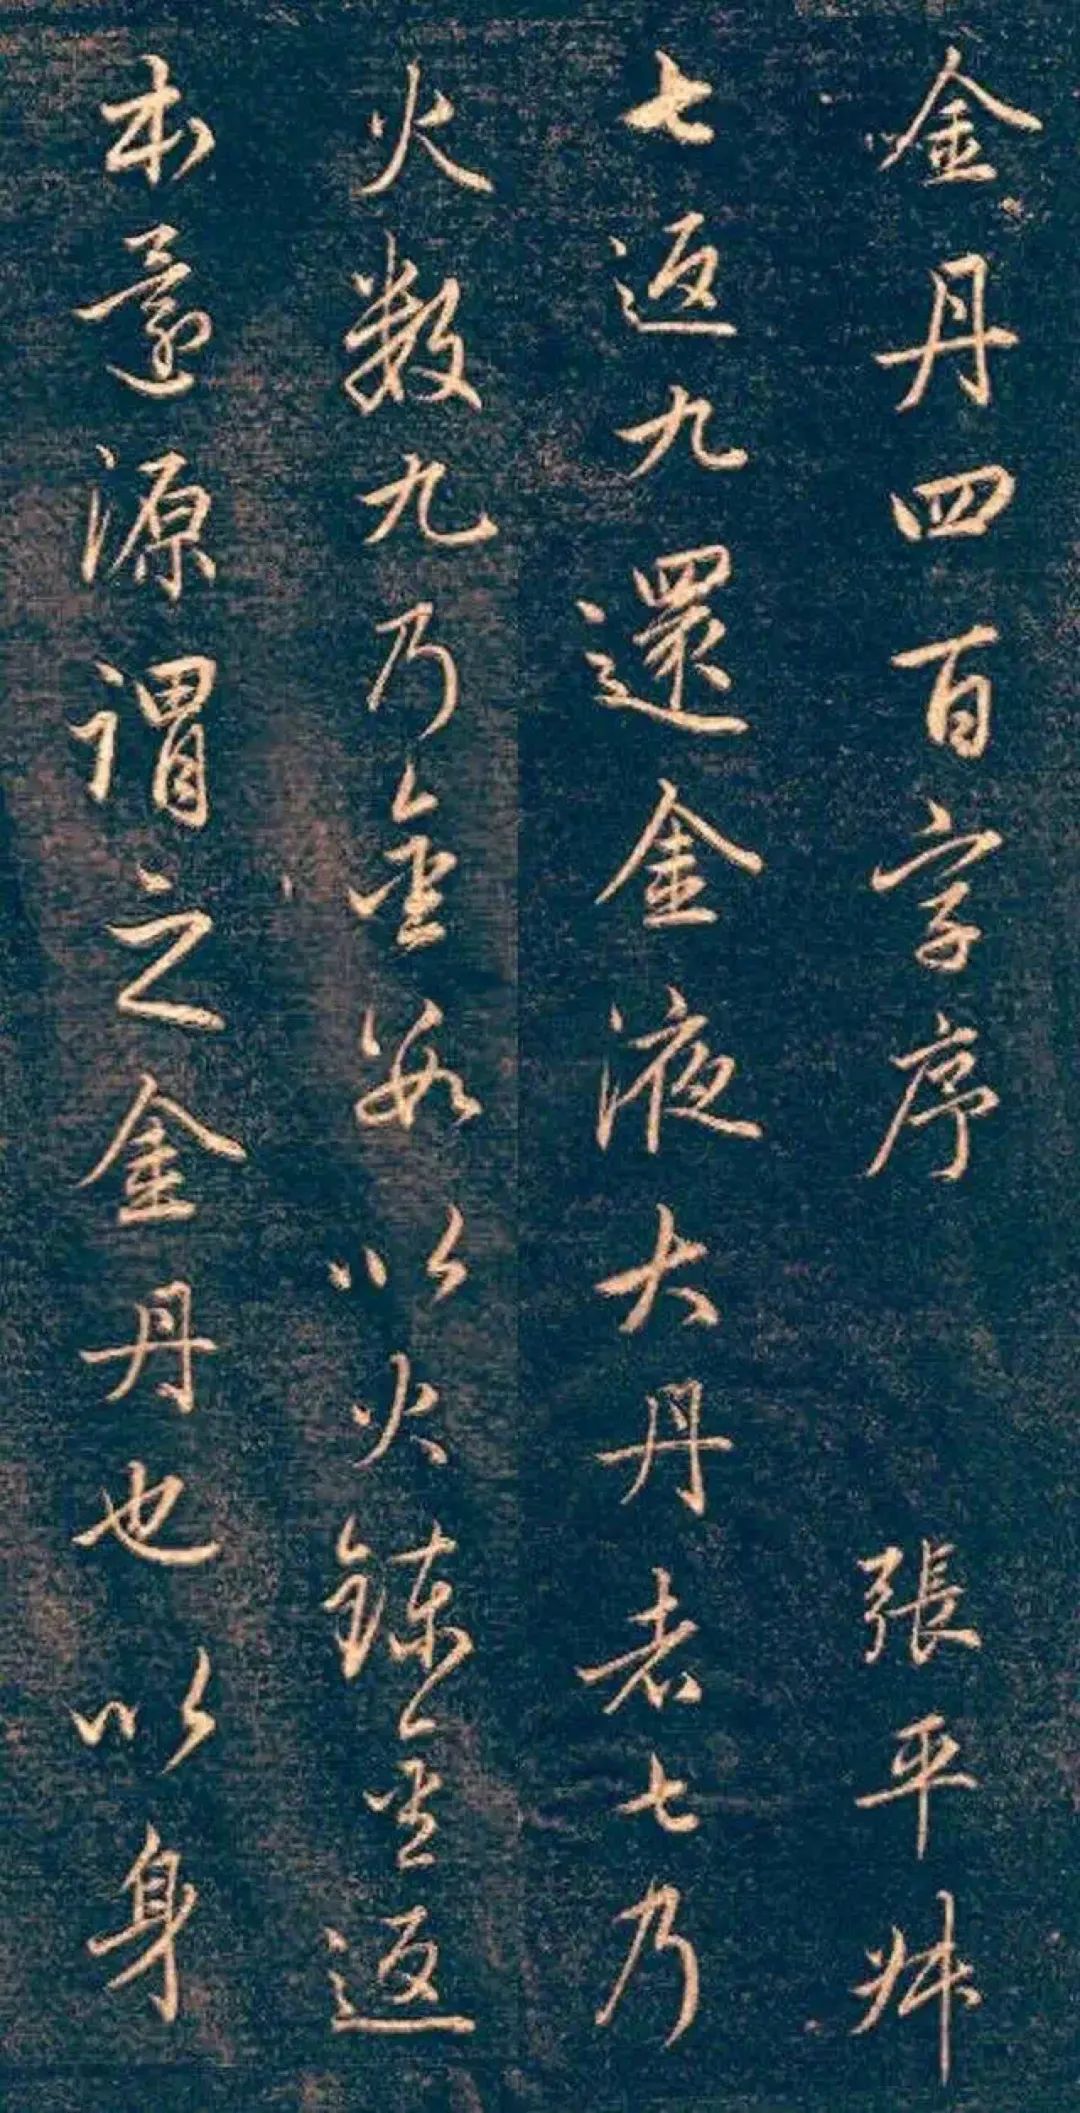 金丹四百字序 張平叔
七返九還金液大丹者七乃
火數九乃金數以火鍊金返
本還源謂之金丹也以身